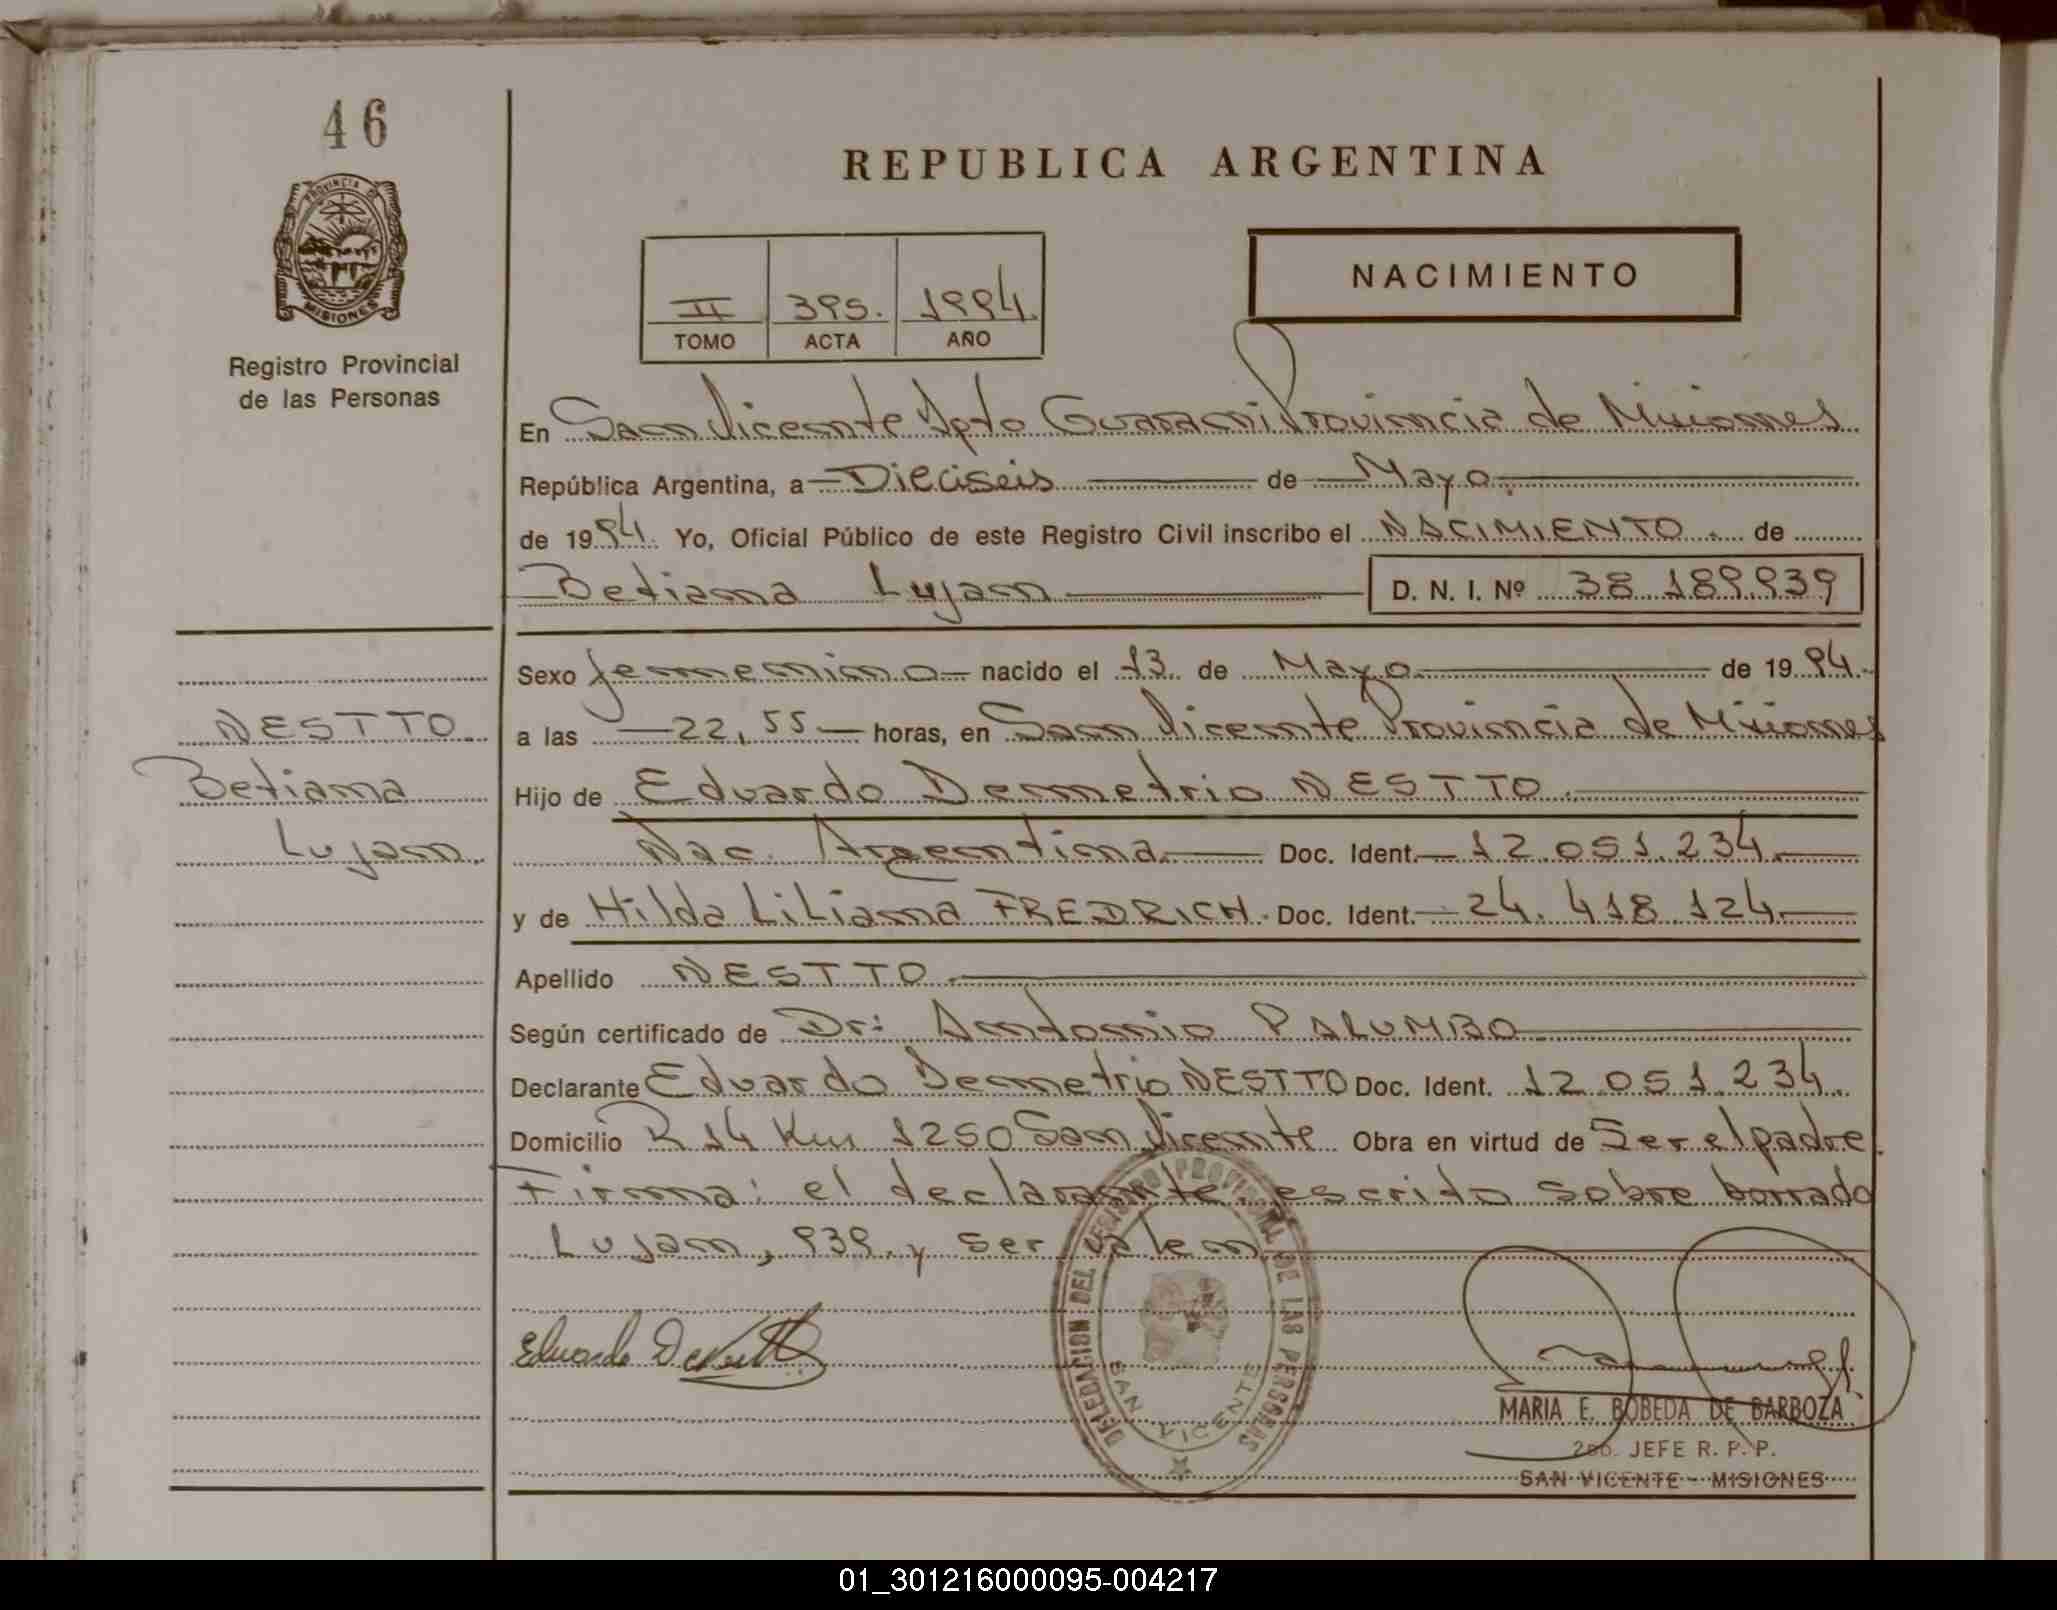 46
PROVINCIA DE
MISIONES
Registro Provincial
de las Personas
REPUBLICA ARGENTINA
II 395. 1994.
TOMO ACTA AÑO
NACIMIENTO
En San Vicente Dpto Guarani Provincia de Misiones
República Argentina, a Dieciseis de Mayo.
de 1994. Yo, Oficial Público de este Registro Civil inscribo el NACIMIENTO de
Betiana Lujan D. N. I. Nº 38.189.939
Sexo femenino nacido el 13 de Mayo de 1994.
a las 22,55 horas, en San Vicente Provincia de Misiones
Hijo de Eduardo Demetrio NESTTO
Nac. Argentina Doc. Ident. 12.051.234
y de Hilda Liliana FREDRICH. Doc. Ident. 24.418.124
Apellido NESTTO
Según certificado de Dr: Antonio PALUMBO
Declarante Eduardo Demetrio NESTTO Doc. Ident. 12.051.234.
Domicilio R 14 Km 1250 San Vicente Obra en virtud de Ser el padre.
Firma: el declarante, escrito sobre borrado
Lujan, 939. y ser valen
NESTTO
Betiana
Lujan.
Eduardo D Nestto
DELEGACION DEL REGISTRO PROVINCIAL DE LAS PERSONAS
SAN VICENTE
MARIA E. BOBEDA DE BARBOZA
2do. JEFE R. P. P.
SAN VICENTE - MISIONES
01_301216000095-004217